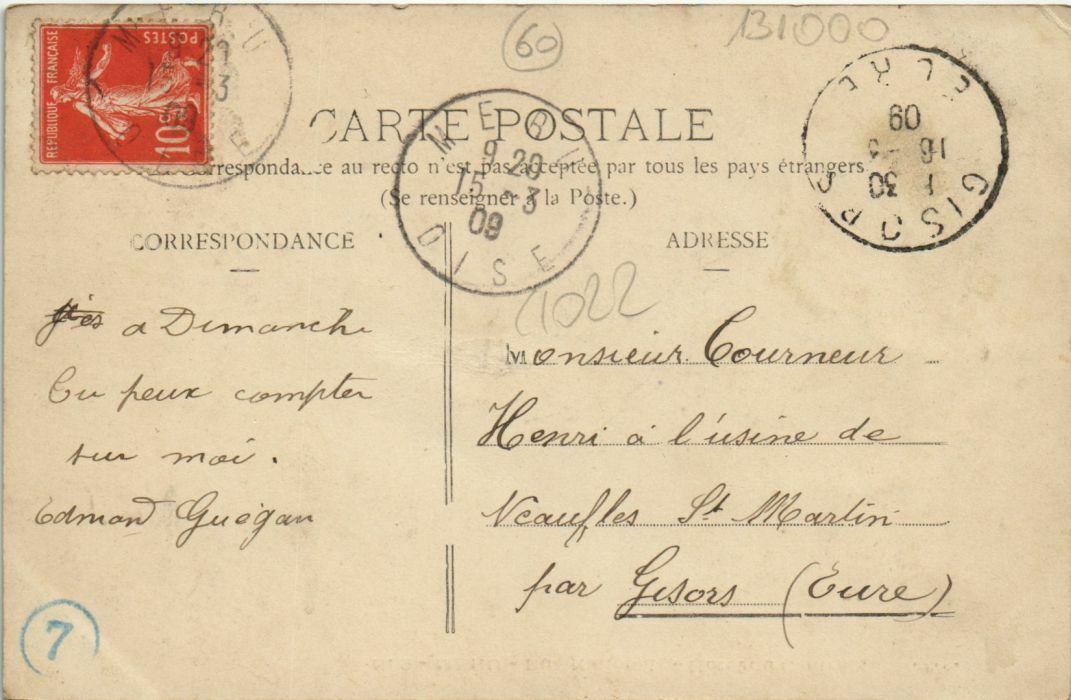 60
131000
REPUBLIQUE FRANÇAISE
POSTES
10c
MERU
9 20
15 - 3
09
OISE
CARTE POSTALE
Correspondance au recto n'est pas acceptée par tous les pays étrangers.
(Se renseigner à la Poste.)
GISORS
EURE
1 30
16 - 3
09
CORRESPONDANCE
ADRESSE
1022
a Dimanche
Tu peux compter
sur moi.
Edmond Guégan
Monsieur Courneur
Henri à l'usine de
Neaufles St Martin
par Gisors (Eure)
7